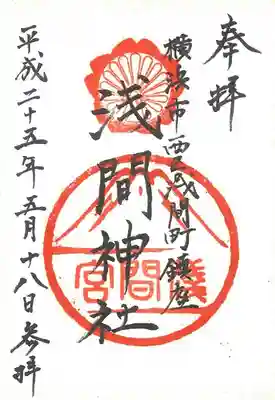 奉拝
横浜市西区浅間町鎮座
浅間神社
淺間宮
平成二十五年五月十八日参拝